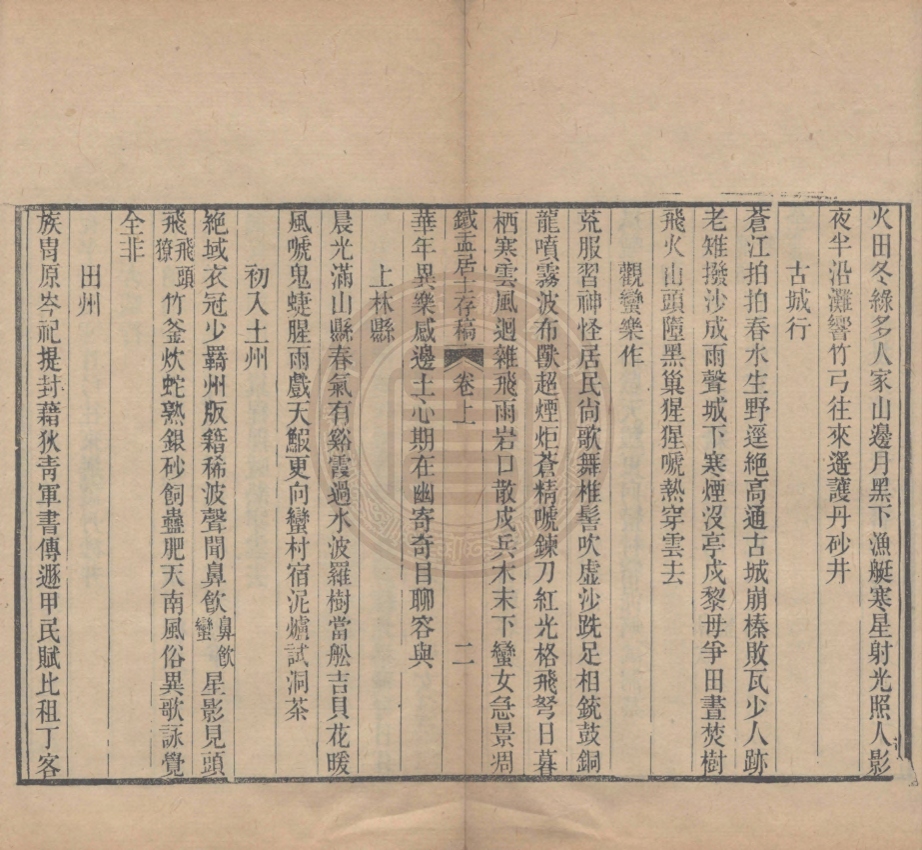 火田冬綠多人家山邊月黑下漁艇寒星射光照人影
夜半沿灘響竹弓往來遙護丹砂井
古城行
蒼江拍拍春水生野逕絶高通古城崩榛敗瓦少人跡
老雉撥沙成雨聲城下寒煙沒亭戍黎母爭田晝焚樹
飛火山頭墮黑巢猩猩嗁熱穿雲去
觀蠻樂作
荒服習神怪居民尙歌舞椎髻吹虛沙跣足相銃鼓銅
龍噴霧波布獸超煙炬蒼精嗁鍊刀紅光格飛弩日暮
栖寒雲風迴雜飛雨岩口散戍兵木末下蠻女急景凋
華年異樂感邊土心期在幽寄奇目聊容與
鐵盂居士存稿 卷上 二
上林縣
晨光滿山縣春氣有谿霞過水波羅樹當舩吉貝花暖
風嗁鬼蜨腥雨戲天鰕更向蠻村宿泥爐試洞茶
初入土州
絶域衣冠少羇州版籍稀波聲聞鼻飮鼻飮蠻星影見頭
飛飛頭獠竹釜炊蛇熟銀砂飼蠱肥天南風俗異歌詠覺
全非
田州
族冑原岑祀提封藉狄靑軍書傳遞甲民賦比租丁客